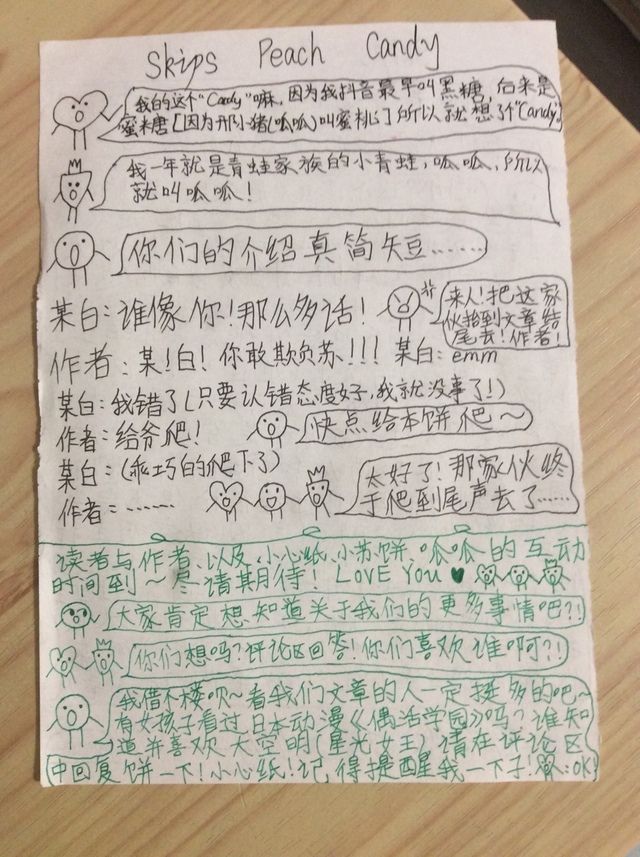 Skips Peach Candy
我的这个"Candy"嘛,因为我抖音最早叫黑糖,后来是
蜜糖[因为邢小猪(呱呱)叫蜜桃]所以就想了个"Candy"
我一年就是青蛙家族的小青蛙,呱呱,所以
就叫呱呱!
你们的介绍真简短……
某白:谁像你!那么多话!
来人!把这家
伙抬到文章结
尾去!作者!
作者:某!白!你敢欺负苏!!! 某白:emm
某白:我错了(只要认错态度好,我就没事了!)
作者:给爷爬!
快点给本饼爬~
某白:(乖巧的爬下了)
作者:……
太好了!那家伙终
于爬到尾声去了……
读者与作者、以及小心纸、小苏饼、呱呱的互动
时间到~尽请期待!LOVE You
大家肯定想知道关于我们的更多事情吧?!
你们想吗?评论区回答!你们喜欢谁啊?!
我借个楼呗~看我们文章的人一定挺多的吧~
有女孩子看过日本动漫《偶活学园》吗?谁知
道并喜欢大空明(星光女王)请在评论区
中回复饼一下!小心纸!记得提醒我一下子!:OK!